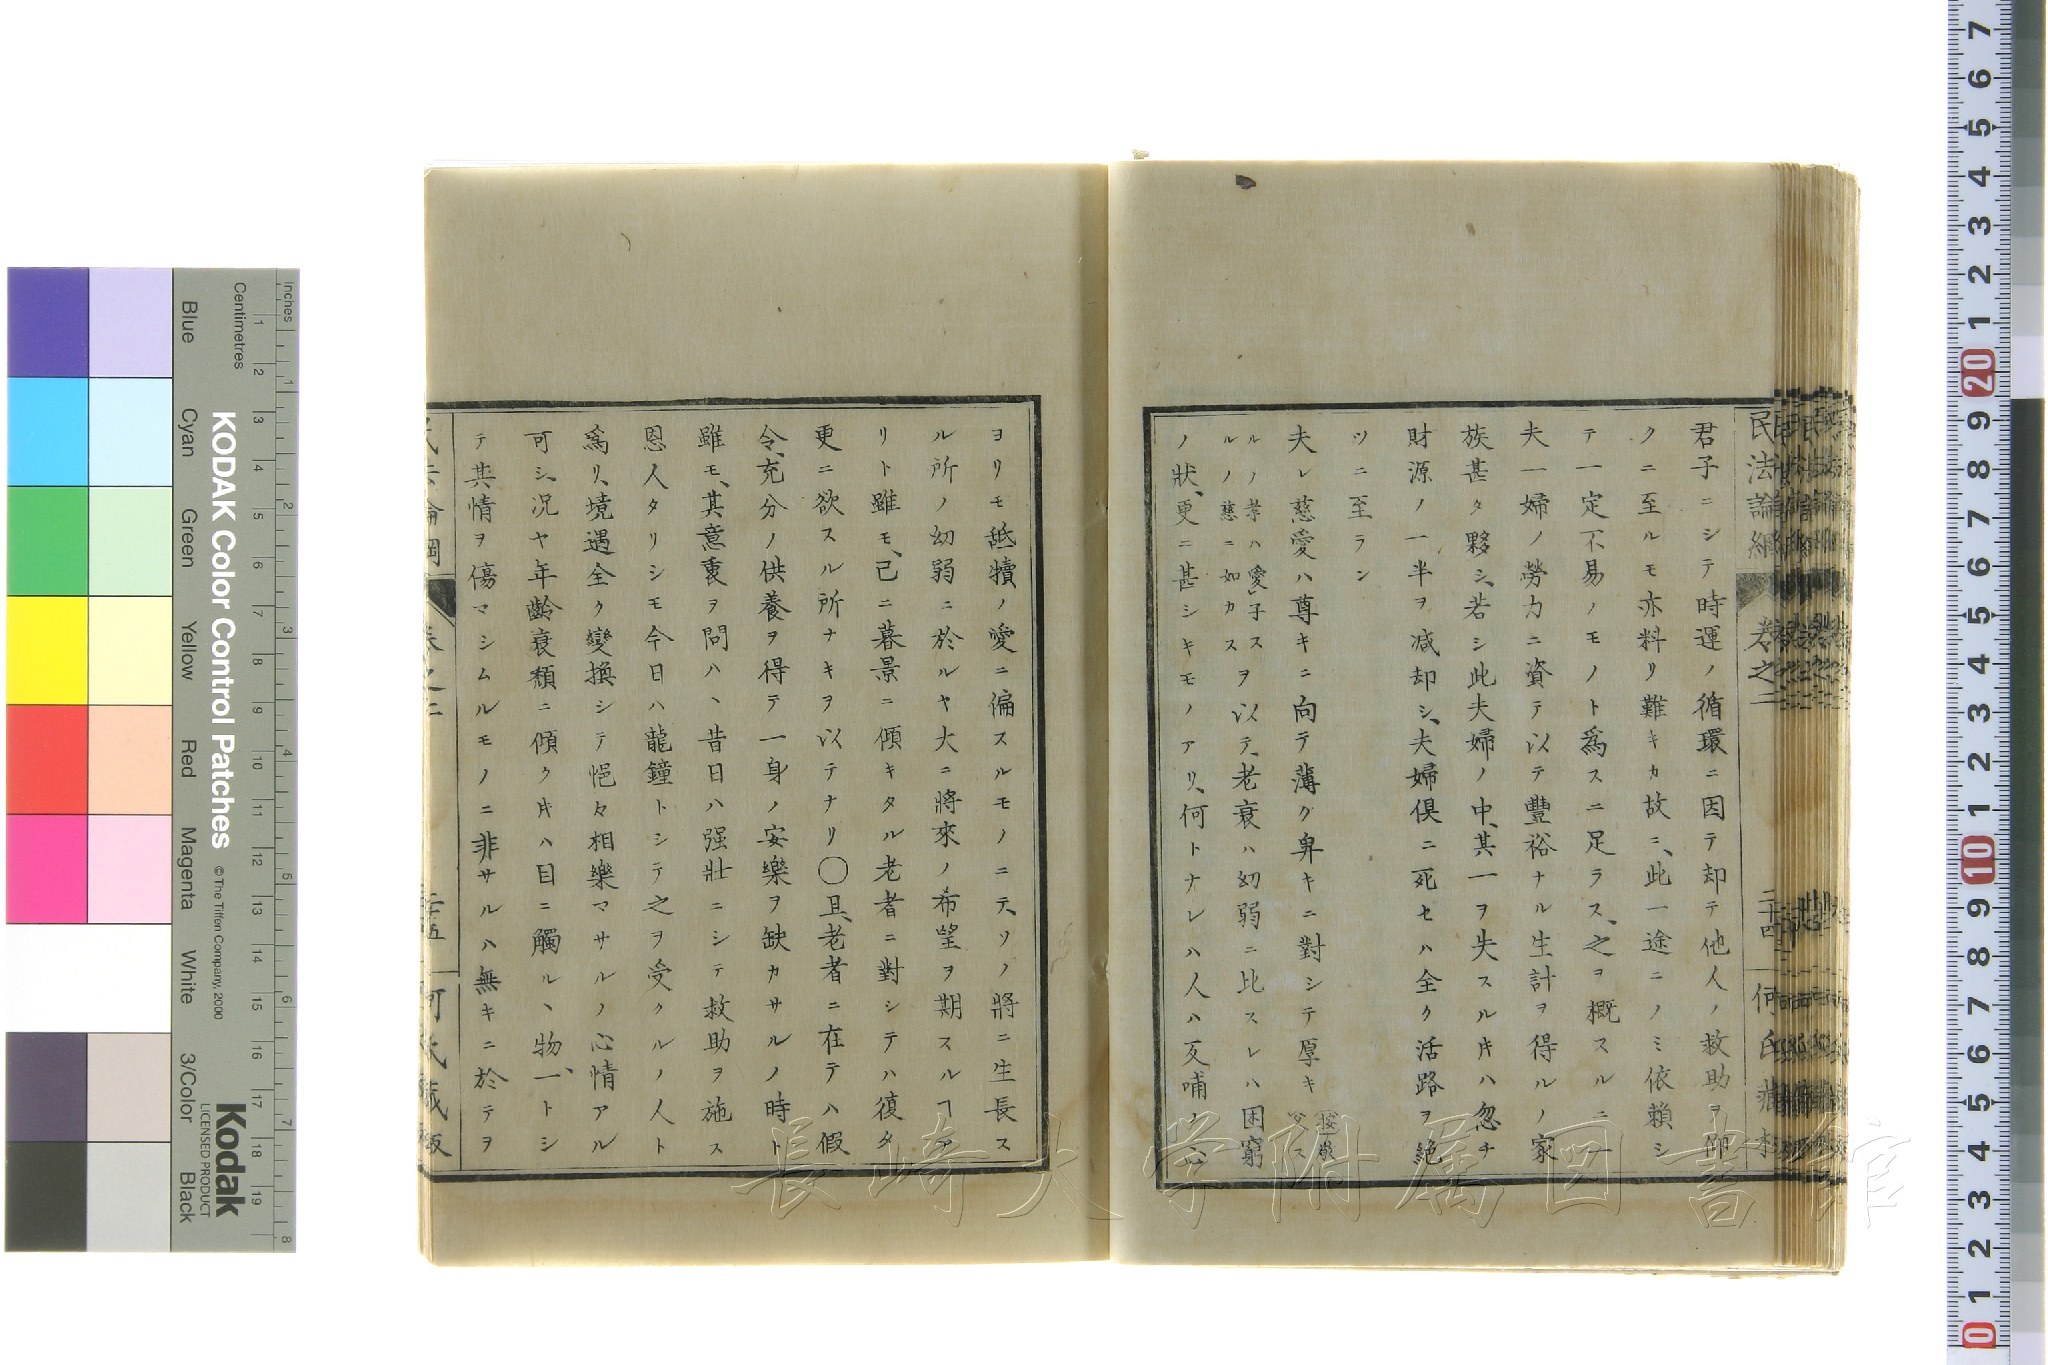 民法論綱 卷之二 二十四 何氏藏板
君子ニシテ時運ノ循環ニ因テ却テ他人ノ救助ヲ仰
クニ至ルモ亦料リ難キカ故ニ、此一途ニノミ依賴シ
テ一定不易ノモノト爲スニ足ラス、之ヲ概スルニ一
夫一婦ノ勞力ニ資テ以テ豐裕ナル生計ヲ得ルノ家
族甚タ夥シ、若シ此夫婦ノ中、其一ヲ失スル𪜈ハ忽チ
財源ノ一半ヲ減却シ、夫婦倶ニ死セハ全ク活路ヲ絶
ツニ至ラン
夫レ慈愛ハ尊キニ向テ薄ク卑キニ對シテ厚キ
ルノ孝ハ愛子ス
ルノ慈ニ如カス
ヲ以テ、老衰ハ幼弱ニ比スレハ困窮
ノ狀、更ニ甚シキモノアリ、何トナレハ人ハ反哺ノ心
ヨリモ舐犢ノ愛ニ偏スルモノニテ、ソノ將ニ生長ス
ル所ノ幼弱ニ於ルヤ大ニ將來ノ希望ヲ期スルヿア
リト雖モ、已ニ暮景ニ傾キタル老者ニ對シテハ復タ
更ニ欲スル所ナキヲ以テナリ〇且、老者ニ在テハ假
令、充分ノ供養ヲ得テ一身ノ安樂ヲ缺カサルノ時ト
雖モ、其意衷ヲ問ハヽ昔日ハ强壯ニシテ救助ヲ施ス
恩人タリシモ今日ハ龍鐘トシテ之ヲ受クルノ人ト
爲リ、境遇全ク變換シテ悒々相樂マサルノ心情アル
可シ、况ヤ年齡衰頽ニ傾ク𪜈ハ目ニ觸ルヽ物、一トシ
テ其情ヲ傷マシムルモノニ非サルハ無キニ於テヲ
卷之二 二十五 何氏藏板
長崎大学附属図書館
KODAK Color Control Patches
© The Tiffen Company, 2000
Kodak
LICENSED PRODUCT
Inches
Centimetres
Blue
Cyan
Green
Yellow
Red
Magenta
White
3/Color
Black